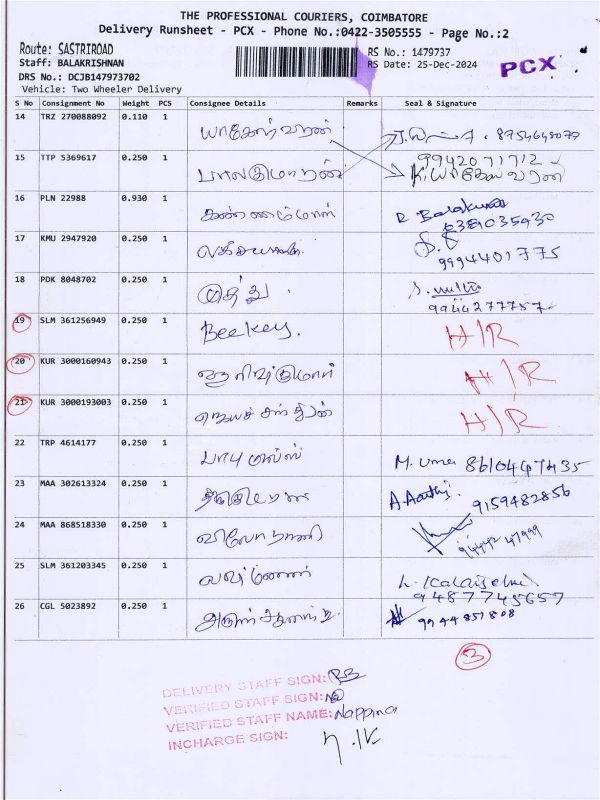 THE PROFESSIONAL COURIERS, COIMBATORE
Delivery Runsheet - PCX - Phone No.:0422-3505555 - Page No.:2
Route: SASTRIROAD
Staff: BALAKRISHNAN
DRS No.: DCJB147973702
Vehicle: Two Wheeler Delivery
RS No.: 1479737
RS Date: 25-Dec-2024
PCX
S No Consignment No Weight PCS Consignee Details Remarks Seal & Signature
14 TRZ 270088092 0.110 1 யாகேஸ்வரன் 8754648079
15 TTP 5369617 0.250 1 பாலகுமாரன் 9942071712
16 PLN 22988 0.930 1 கண்ணம்மாள் R. Balakumar
17 KMU 2947920 0.250 1 9994401775
18 PDK 8048702 0.250 1 முத்து. S. muthu 9944277757
19 SLM 361256949 0.250 1 Beekeys. H/R
20 KUR 3000160943 0.250 1 H/R
21 KUR 3000193003 0.250 1 H/R
22 TRP 4614177 0.250 1 M. Uma 8610447435
23 MAA 302613324 0.250 1 A. Aarthi. 9159482856
24 MAA 868518330 0.250 1
25 SLM 361203345 0.250 1 9487745657
26 CGL 5023892 0.250 1 9944857808
3
DELIVERY STAFF SIGN:
VERIFIED STAFF SIGN:
VERIFIED STAFF NAME: Nappina
INCHARGE SIGN: